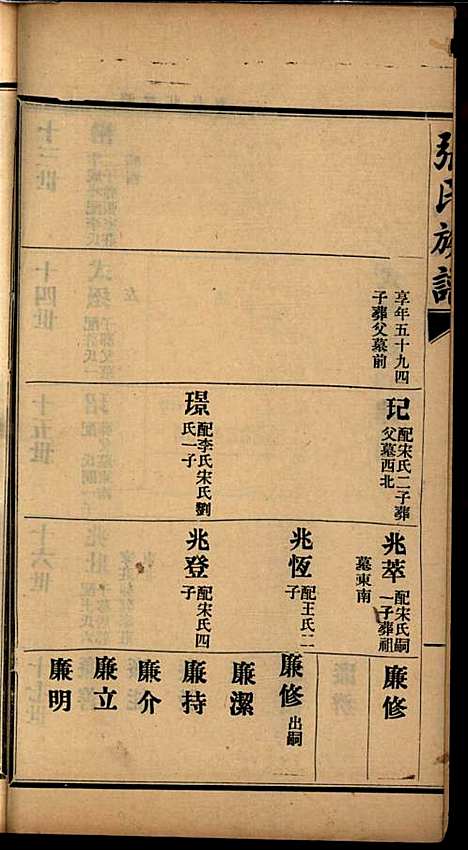 張氏族譜
享年五十九四
子葬父墓前
玘
配宋氏二子葬
父墓西北
璟
配李氏宋氏劉
氏一子
兆萃
配宋氏嗣
一子葬祖
墓東南
兆恆
配王氏二
子
兆登
配宋氏四
子
廉修
廉修 出嗣
廉潔
廉持
廉介
廉立
廉明